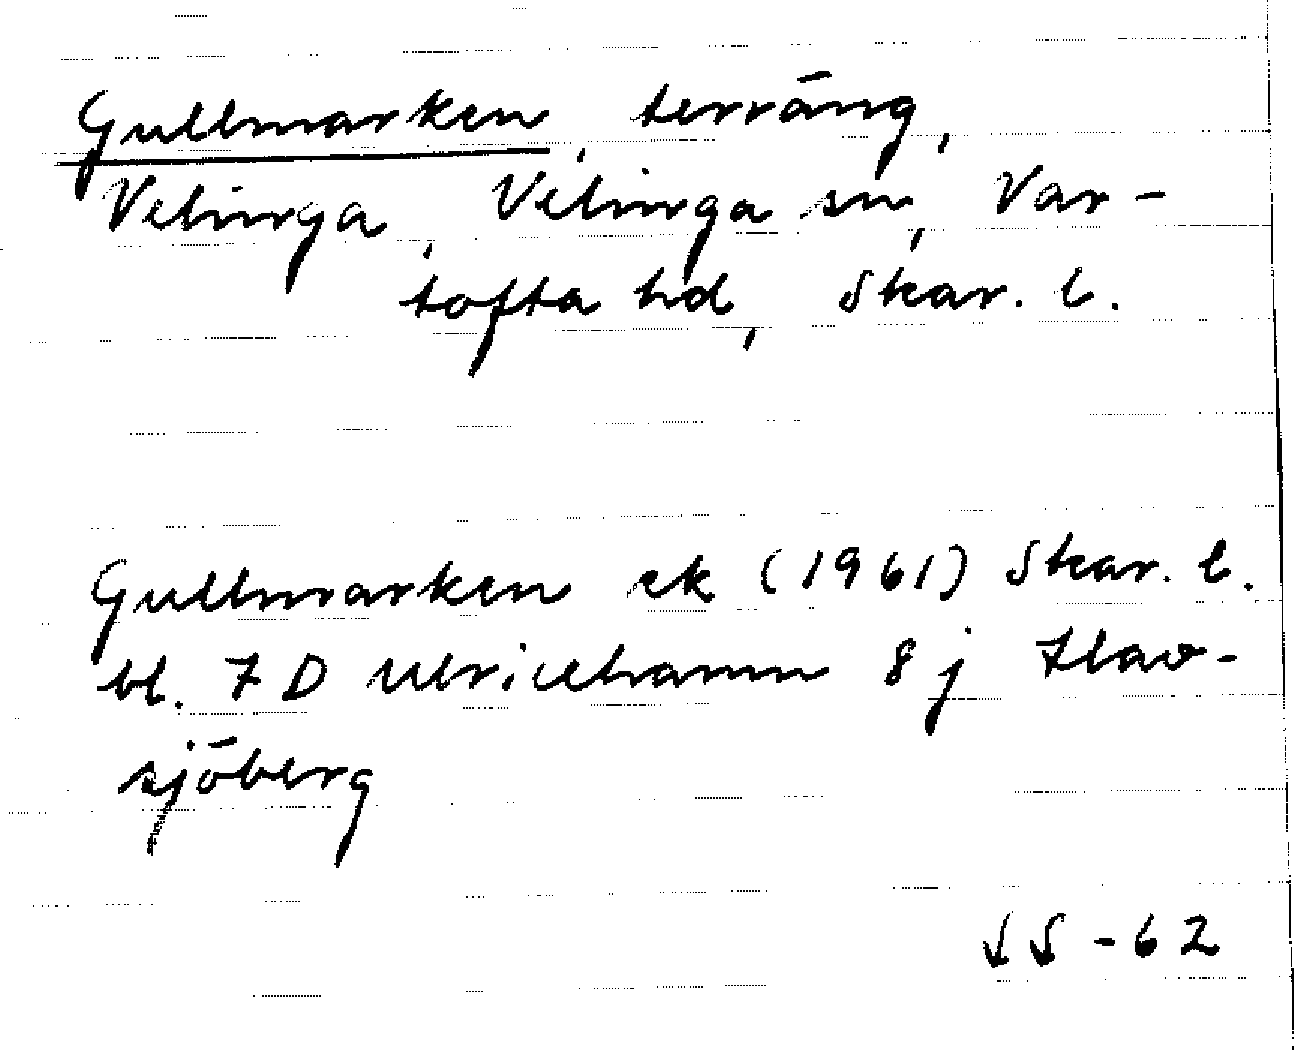 Gullmarken, terräng,
Velinga, Velinga sn, Var-
tofta hd, Skar. l.
Gullmarken ek (1961) Skar. l.
bl. 7 D Ulricehamn 8 j Flav-
sjöberg
SS -62